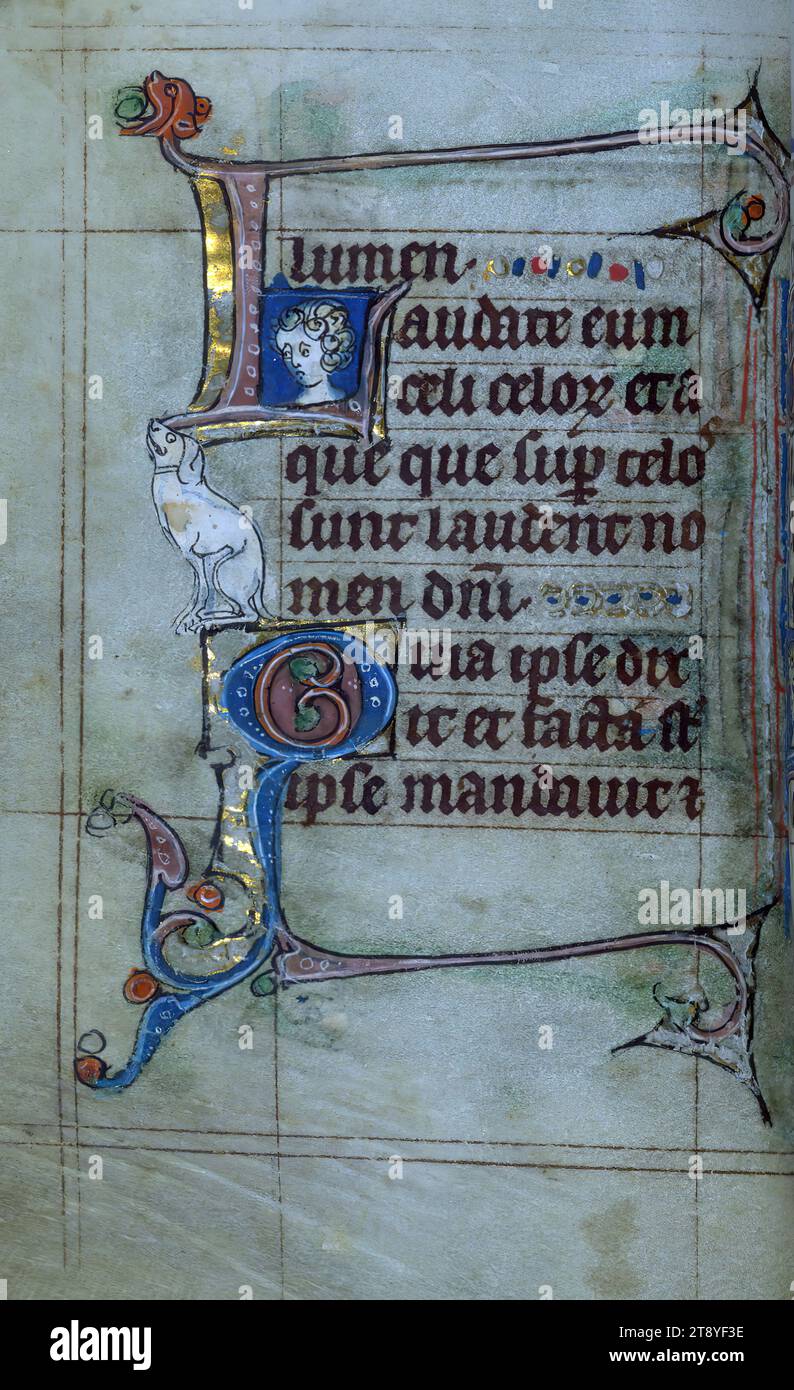 lumen.
Laudate eum
celi celoꝝ et a
que que suꝑ celos
sunt laudent no
men dn̄i.
Quia ipse dix
it et facta st̄
ipse mandauit ⁊
alamy
Image ID: 2T8YF3E
www.alamy.com